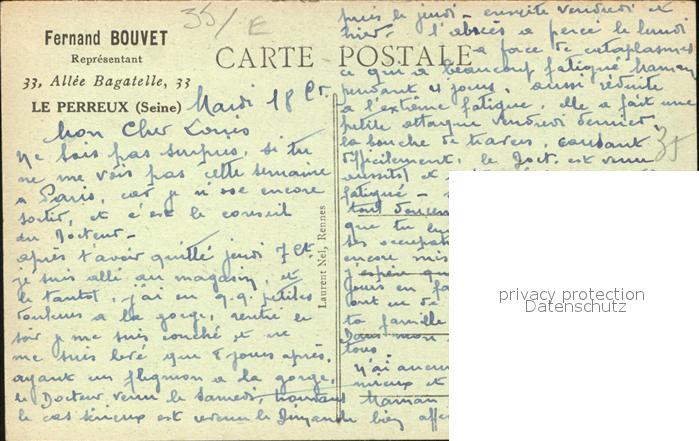 35/E
Fernand BOUVET
Représentant
33, Allée Bagatelle, 33
LE PERREUX (Seine)
CARTE POSTALE
Mardi 18 Ct.
Mon Cher Louis
Ne sois pas surpris, si tu
ne me vois pas cette semaine
à Paris, car je n'ose encore
sortir, et c'est le conseil
du Docteur -
après t'avoir quitté jeudi 7 Ct.
je suis allé au magasin, et
le tantôt, j'ai eu q.q. petites
douleurs à la gorge, rentré le
soir je me suis couché et ne
me suis levé que 8 jours après,
ayant un flegmon à la gorge,
le Docteur venu le samedi, trouvant
le cas sérieux est revenu le Dimanche
Laurent Nel, Rennes
puis le jeudi - ensuite vendredi et
hier. L'abcès a percé le lundi
à face de cataplasmes
ce qui a beaucoup fatigué Maman
pendant 4 jours, aussi réduite
à l'extrême fatigue, elle a fait une
petite attaque vendredi dernier,
la bouche de travers, causant
difficilement, le Doct. est venu
35
aussitôt et
fatigué -
tout doucem
que tu
ses occupat
encore mis
j'espère qu
jours en fa
ont
de
ta famille
Dans mon
tous
n'ai aucun
mieux et
Maman
bien affe
privacy protection
Datenschutz